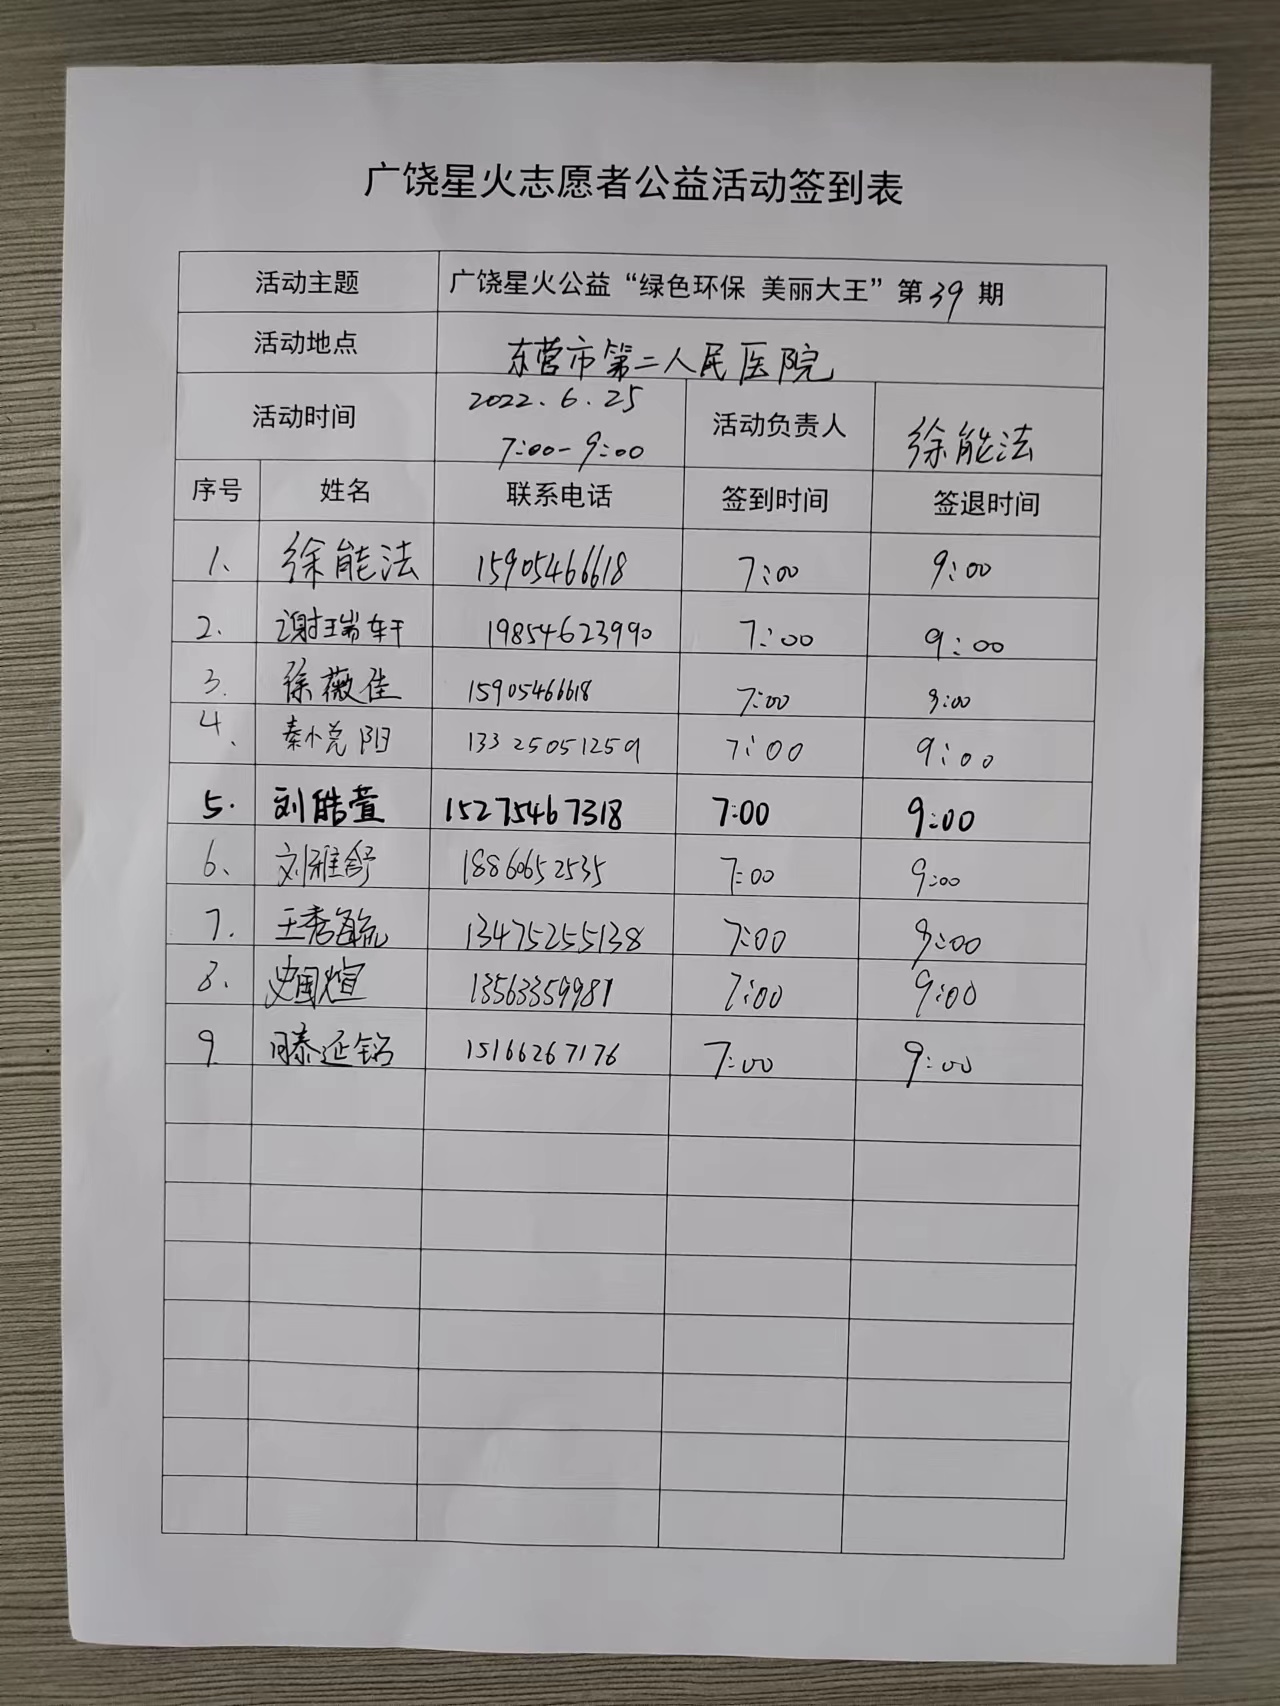 广饶星火志愿者公益活动签到表
活动主题 广饶星火公益“绿色环保 美丽大王”第39期
活动地点 东营市第二人民医院
活动时间 2022.6.25 7:00-9:00 活动负责人 徐能法
序号 姓名 联系电话 签到时间 签退时间
1、 徐能法 15905466618 7:00 9:00
2. 谢瑞轩 19854623990 7:00 9:00
3. 徐薇佳 15905466618 7:00 9:00
4、 秦小尧阳 13325051259 7:00 9:00
5. 刘皓萱 15275467318 7:00 9:00
6、 刘雅舒 18860652535 7:00 9:00
7. 王秀毓 13475255138 7:00 9:00
8. 史国煊 13563359987 7:00 9:00
9 滕延铭 15166267176 7:00 9:00